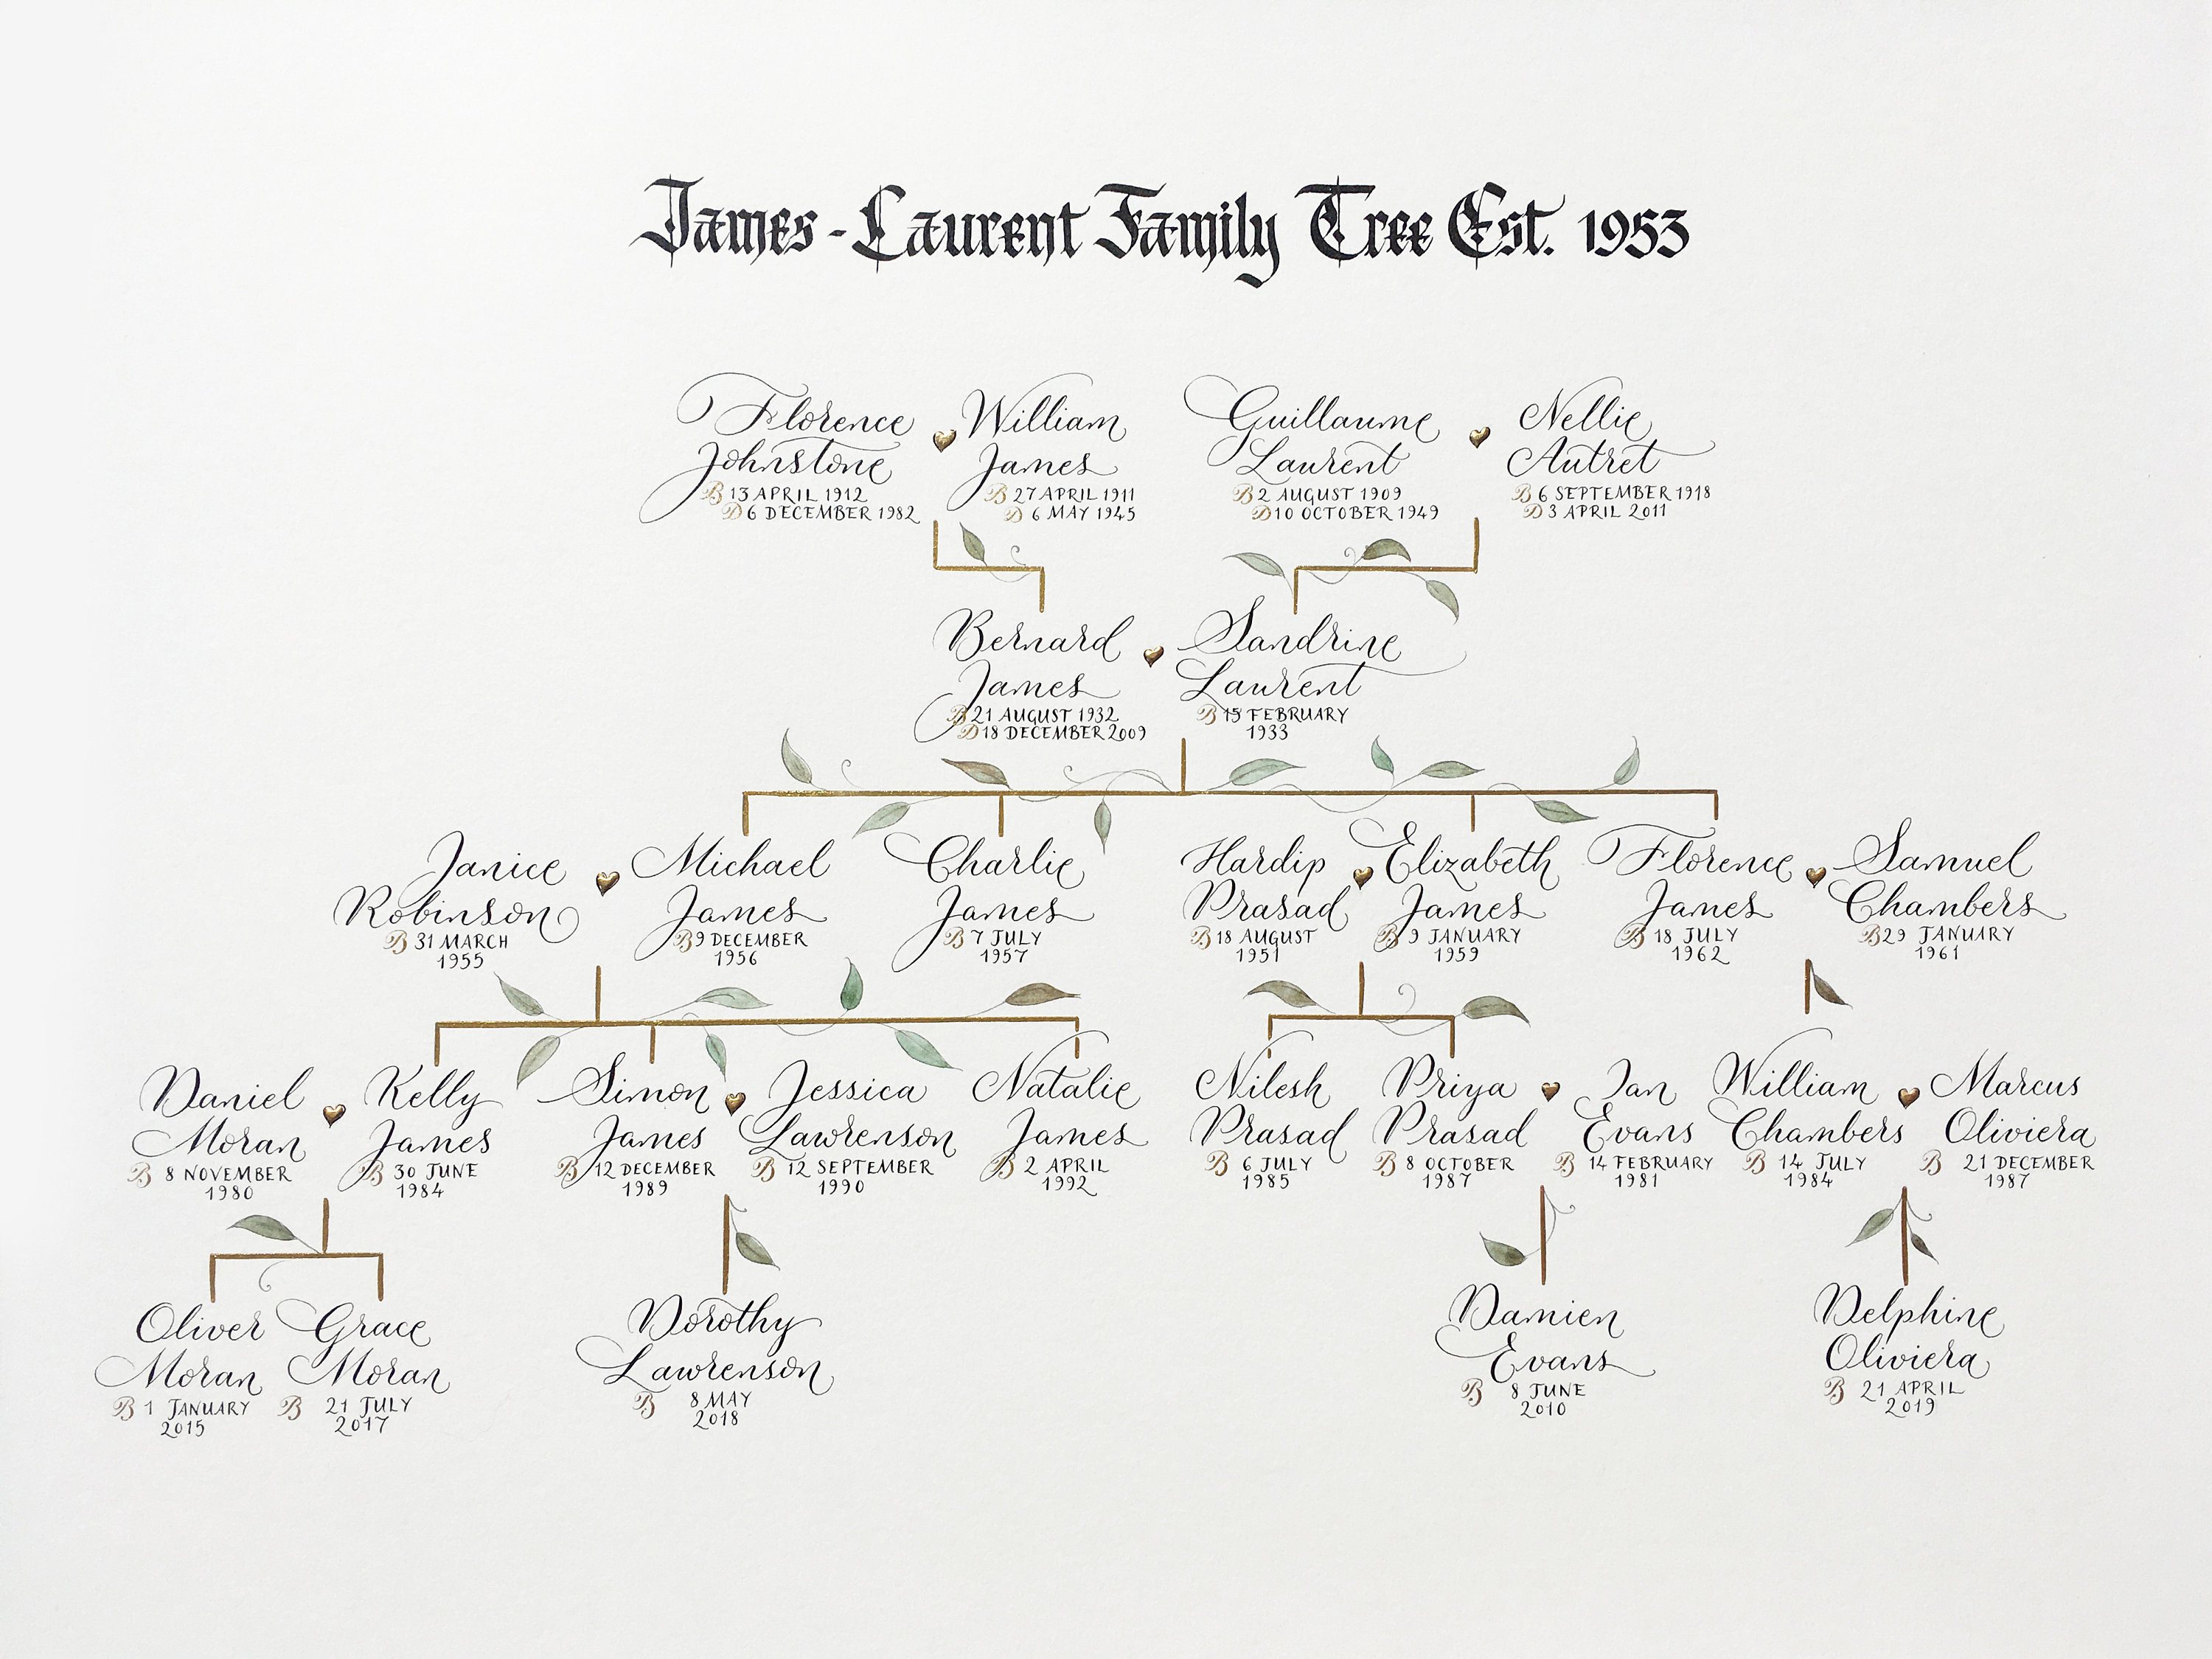 James - Laurent Family Tree Est. 1953
Florence
Johnstone
B 13 APRIL 1912
D 6 DECEMBER 1982
William
James
B 27 APRIL 1911
D 6 MAY 1945
Guillaume
Laurent
B 2 AUGUST 1909
D 10 OCTOBER 1949
Nellie
Autret
B 6 SEPTEMBER 1918
D 3 APRIL 2011
Bernard
James
B 21 AUGUST 1932
D 18 DECEMBER 2009
Sandrine
Laurent
B 15 FEBRUARY
1933
Janice
Robinson
B 31 MARCH
1955
Michael
James
B 9 DECEMBER
1956
Charlie
James
B 7 JULY
1957
Hardip
Prasad
B 18 AUGUST
1951
Elizabeth
James
B 9 JANUARY
1959
Florence
James
B 18 JULY
1962
Samuel
Chambers
B 29 JANUARY
1961
Daniel
Moran
B 8 NOVEMBER
1980
Kelly
James
B 30 JUNE
1984
Simon
James
B 12 DECEMBER
1989
Jessica
Lawrenson
B 12 SEPTEMBER
1990
Natalie
James
B 2 APRIL
1992
Nilesh
Prasad
B 6 JULY
1985
Priya
Prasad
B 8 OCTOBER
1987
Ian
Evans
B 14 FEBRUARY
1981
William
Chambers
B 14 JULY
1984
Marcus
Oliviera
B 21 DECEMBER
1987
Oliver
Moran
B 1 JANUARY
2015
Grace
Moran
B 21 JULY
2017
Dorothy
Lawrenson
B 8 MAY
2018
Damien
Evans
B 8 JUNE
2010
Delphine
Oliviera
B 21 APRIL
2019